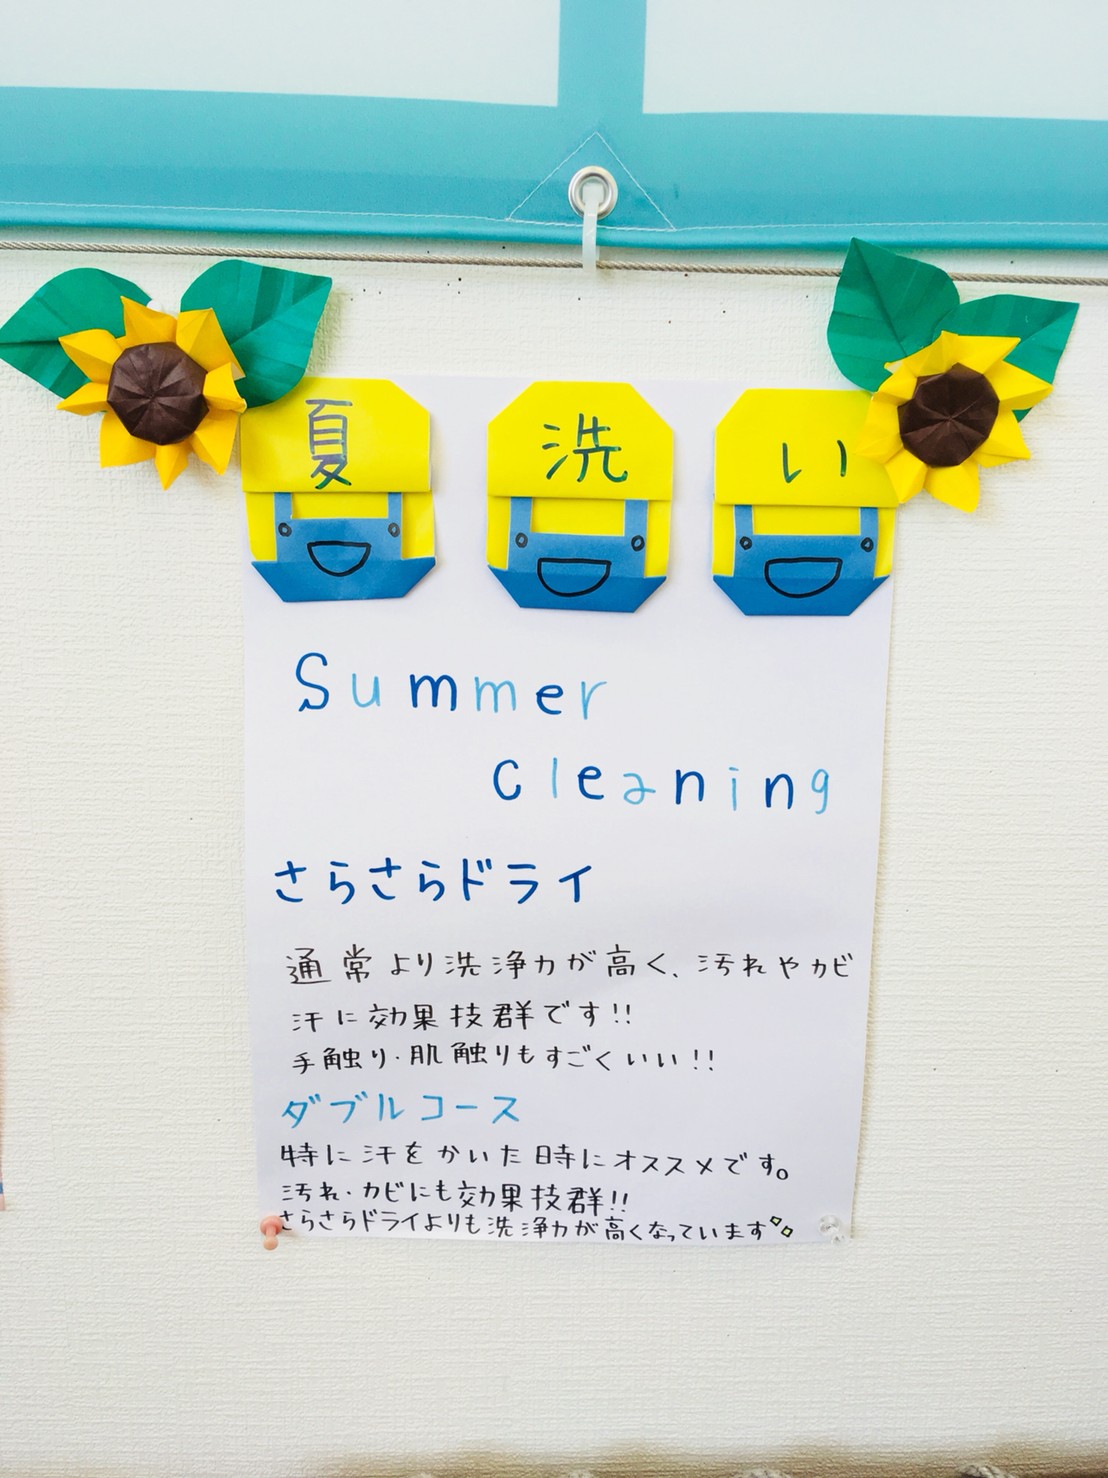 夏洗い
Summer
cleaning
さらさらドライ
通常より洗浄力が高く、汚れやカビ
汗に効果抜群です!!
手触り・肌触りもすごくいい!!
ダブルコース
特に汗をかいた時にオススメです。
汚れ・カビにも効果抜群!!
さらさらドライよりも洗浄力が高くなっています